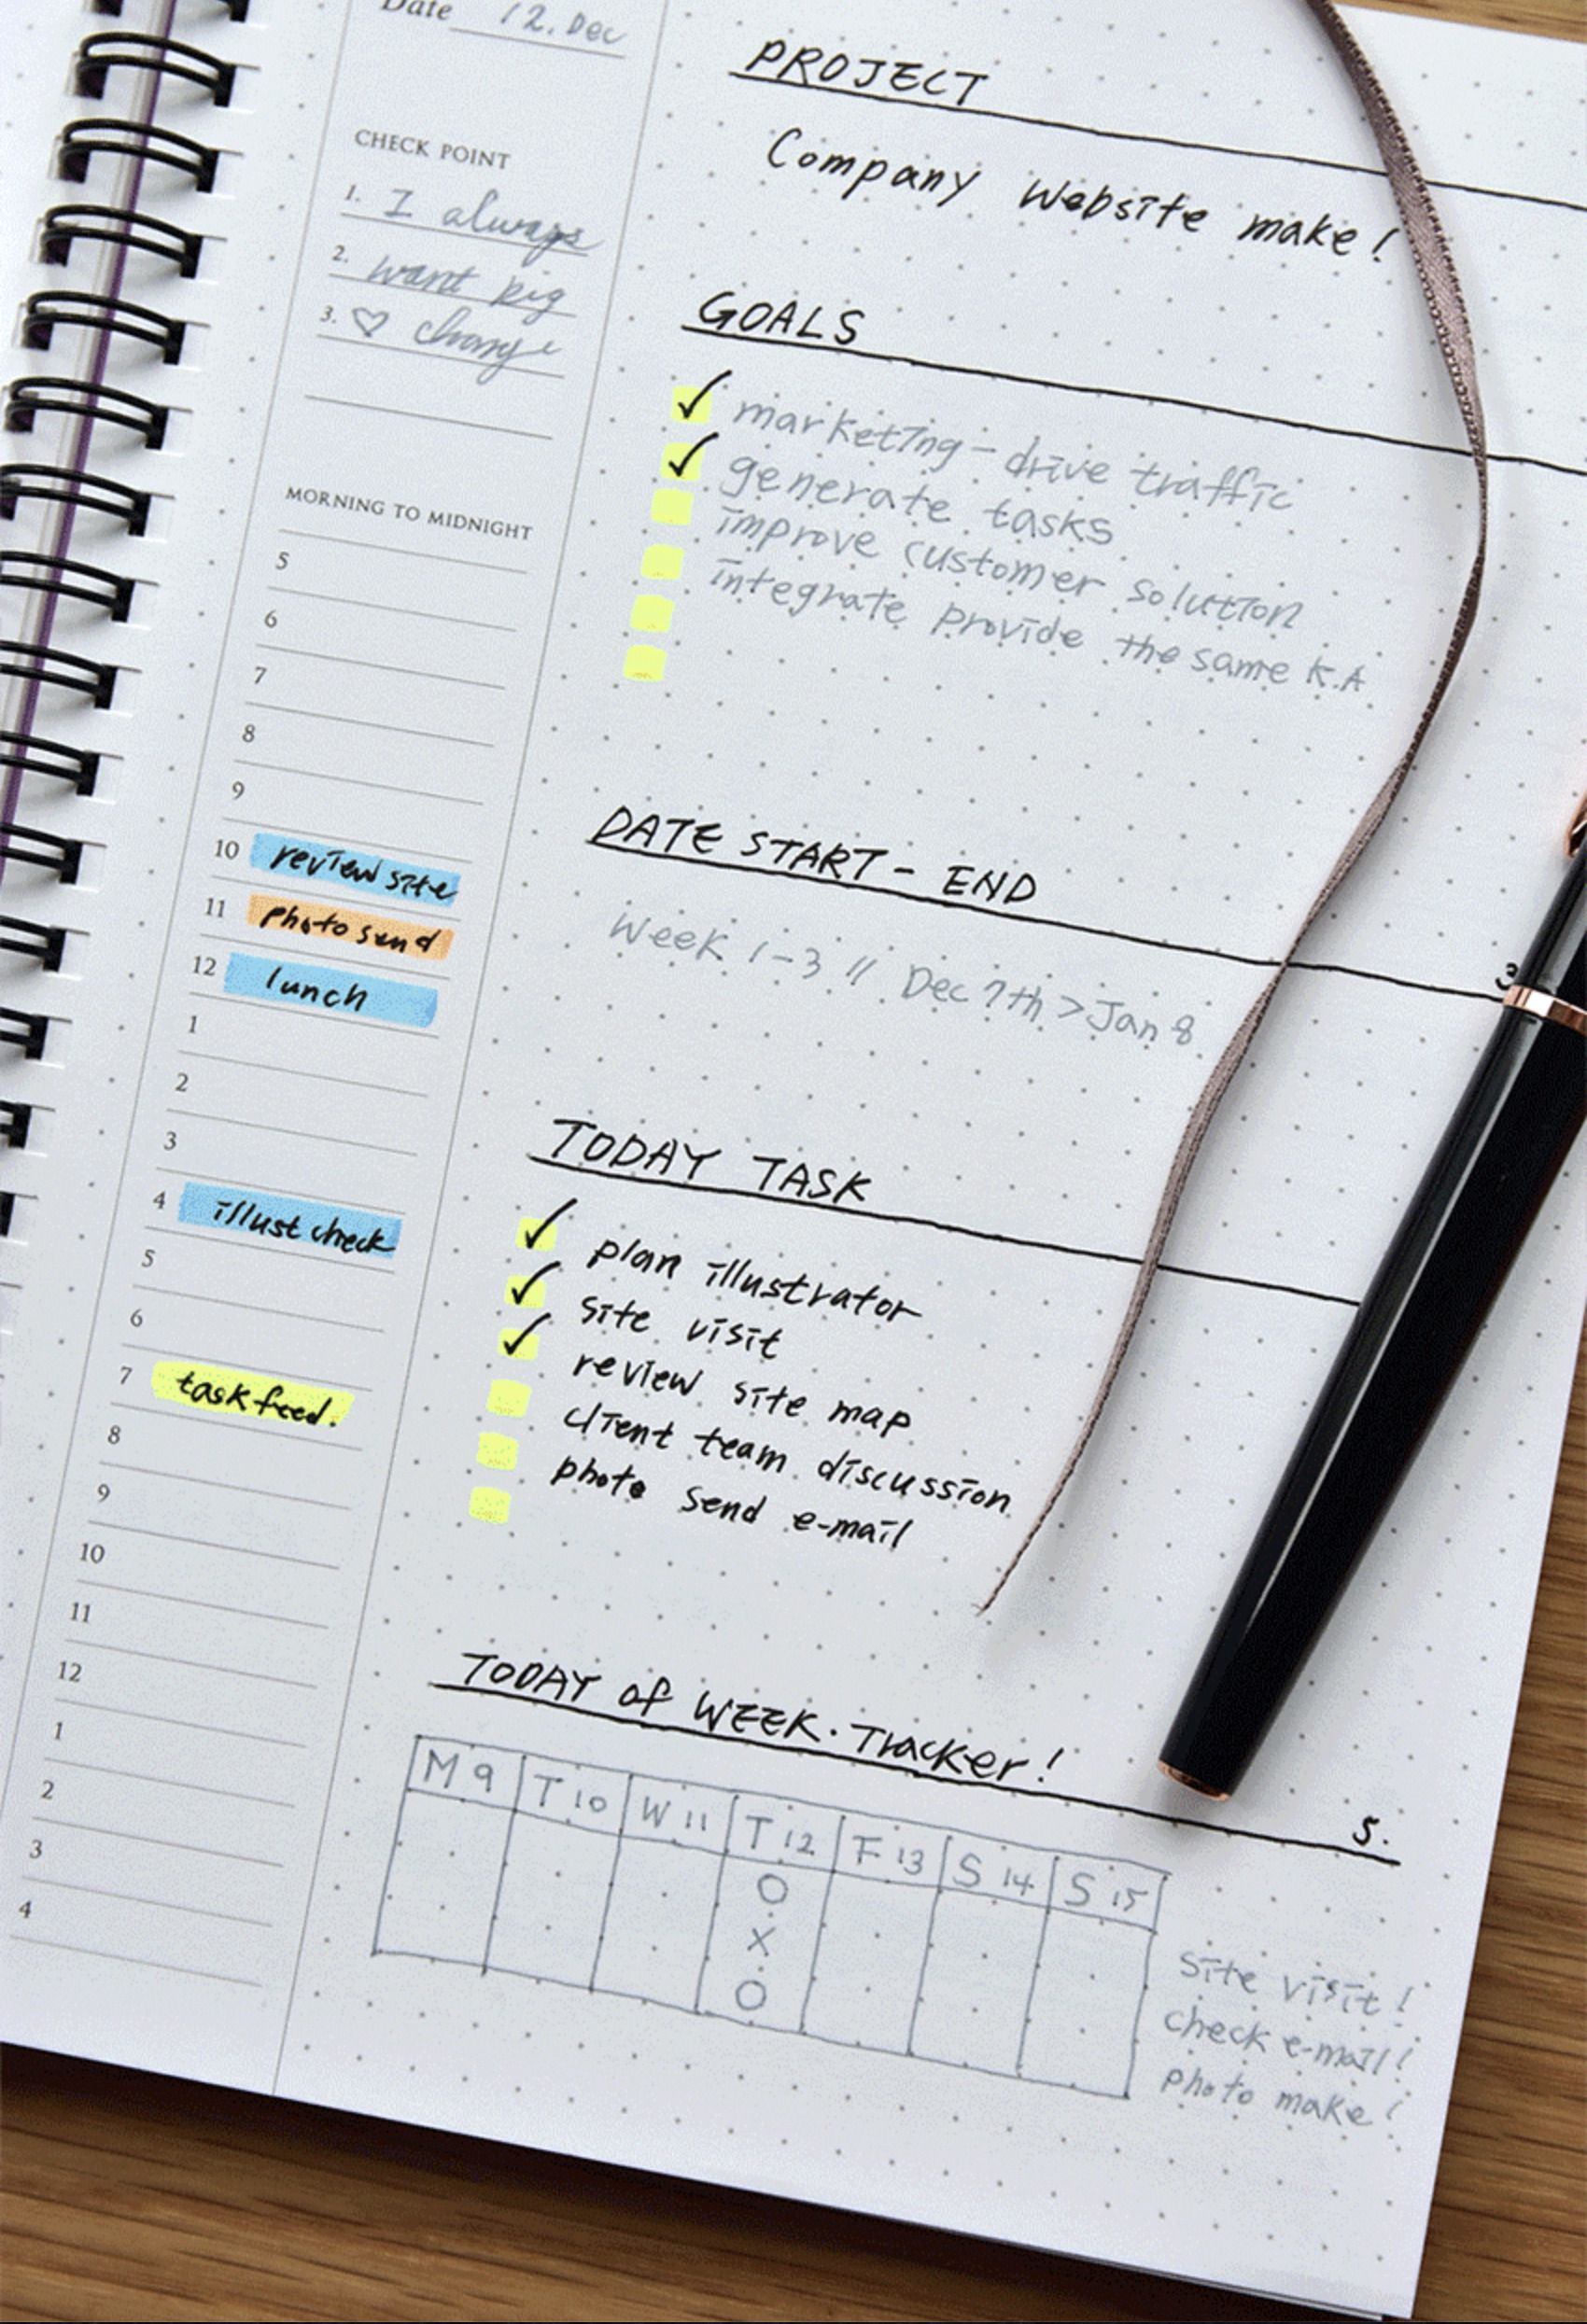 Date 12. Dec
CHECK POINT
1. I always
2. want big
3. ♡ change
MORNING TO MIDNIGHT
5
6
7
8
9
10 review site
11 photo send
12 lunch
1
2
3
4 illust check
5
6
7 task feed.
8
9
10
11
12
1
2
3
4
PROJECT
Company Website make!
GOALS
✓ marketing - drive traffic
✓ generate tasks
improve customer solution
integrate provide the same K.A
DATE START - END
3
Week 1-3 // Dec 7th > Jan 8
TODAY TASK
✓ plan illustrator
✓ site visit
✓ review site map
client team discussion
photo send e-mail
TODAY of WEEK. Tracker!
5.
M 9 T 10 W 11 T 12 F 13 S 14 S 15
O site visit!
X check e-mail!
O photo make!